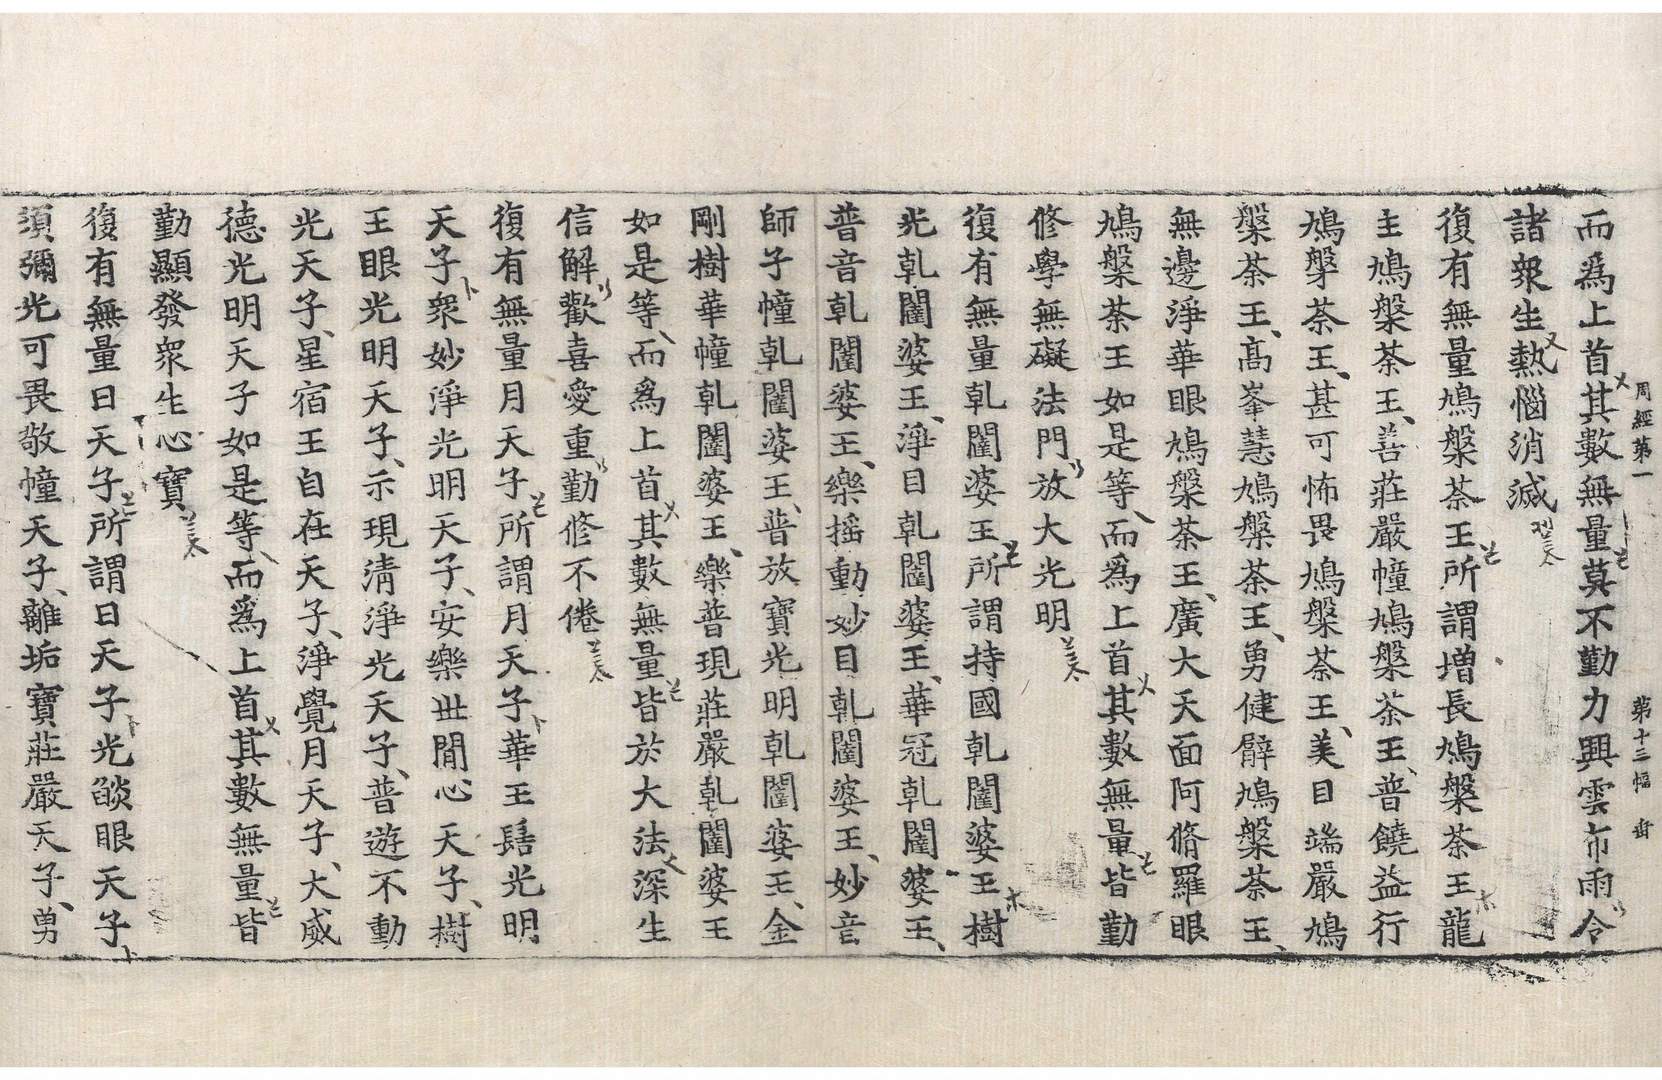 周經第一 第十三幅
而爲上首其數無量莫不勤力興雲布雨令
諸衆生熱惱消滅
復有無量鳩槃荼王所謂增長鳩槃荼王龍
主鳩槃荼王善莊嚴幢鳩槃荼王普饒益行
鳩槃荼王甚可怖畏鳩槃荼王美目端嚴鳩
槃荼王高峯慧鳩槃荼王勇健臂鳩槃荼王
無邊淨華眼鳩槃荼王廣大天面阿脩羅眼
鳩槃荼王如是等而爲上首其數無量皆勤
修學無礙法門放大光明
復有無量乹闥婆王所謂持國乹闥婆王樹
光乹闥婆王淨目乹闥婆王華冠乹闥婆王
普音乹闥婆王樂揺動妙目乹闥婆王妙音
師子幢乹闥婆王普放寶光明乹闥婆王金
剛樹華幢乹闥婆王樂普現莊嚴乹闥婆王
如是等而爲上首其數無量皆於大法深生
信解歡喜愛重勤修不倦
復有無量月天子所謂月天子華王髻光明
天子衆妙淨光明天子安樂世間心天子樹
王眼光明天子示現清淨光天子普遊不動
光天子星宿王自在天子淨覺月天子大威
德光明天子如是等而爲上首其數無量皆
勤顯發衆生心寶
復有無量日天子所謂日天子光燄眼天子
須彌光可畏敬幢天子離垢寶莊嚴天子勇